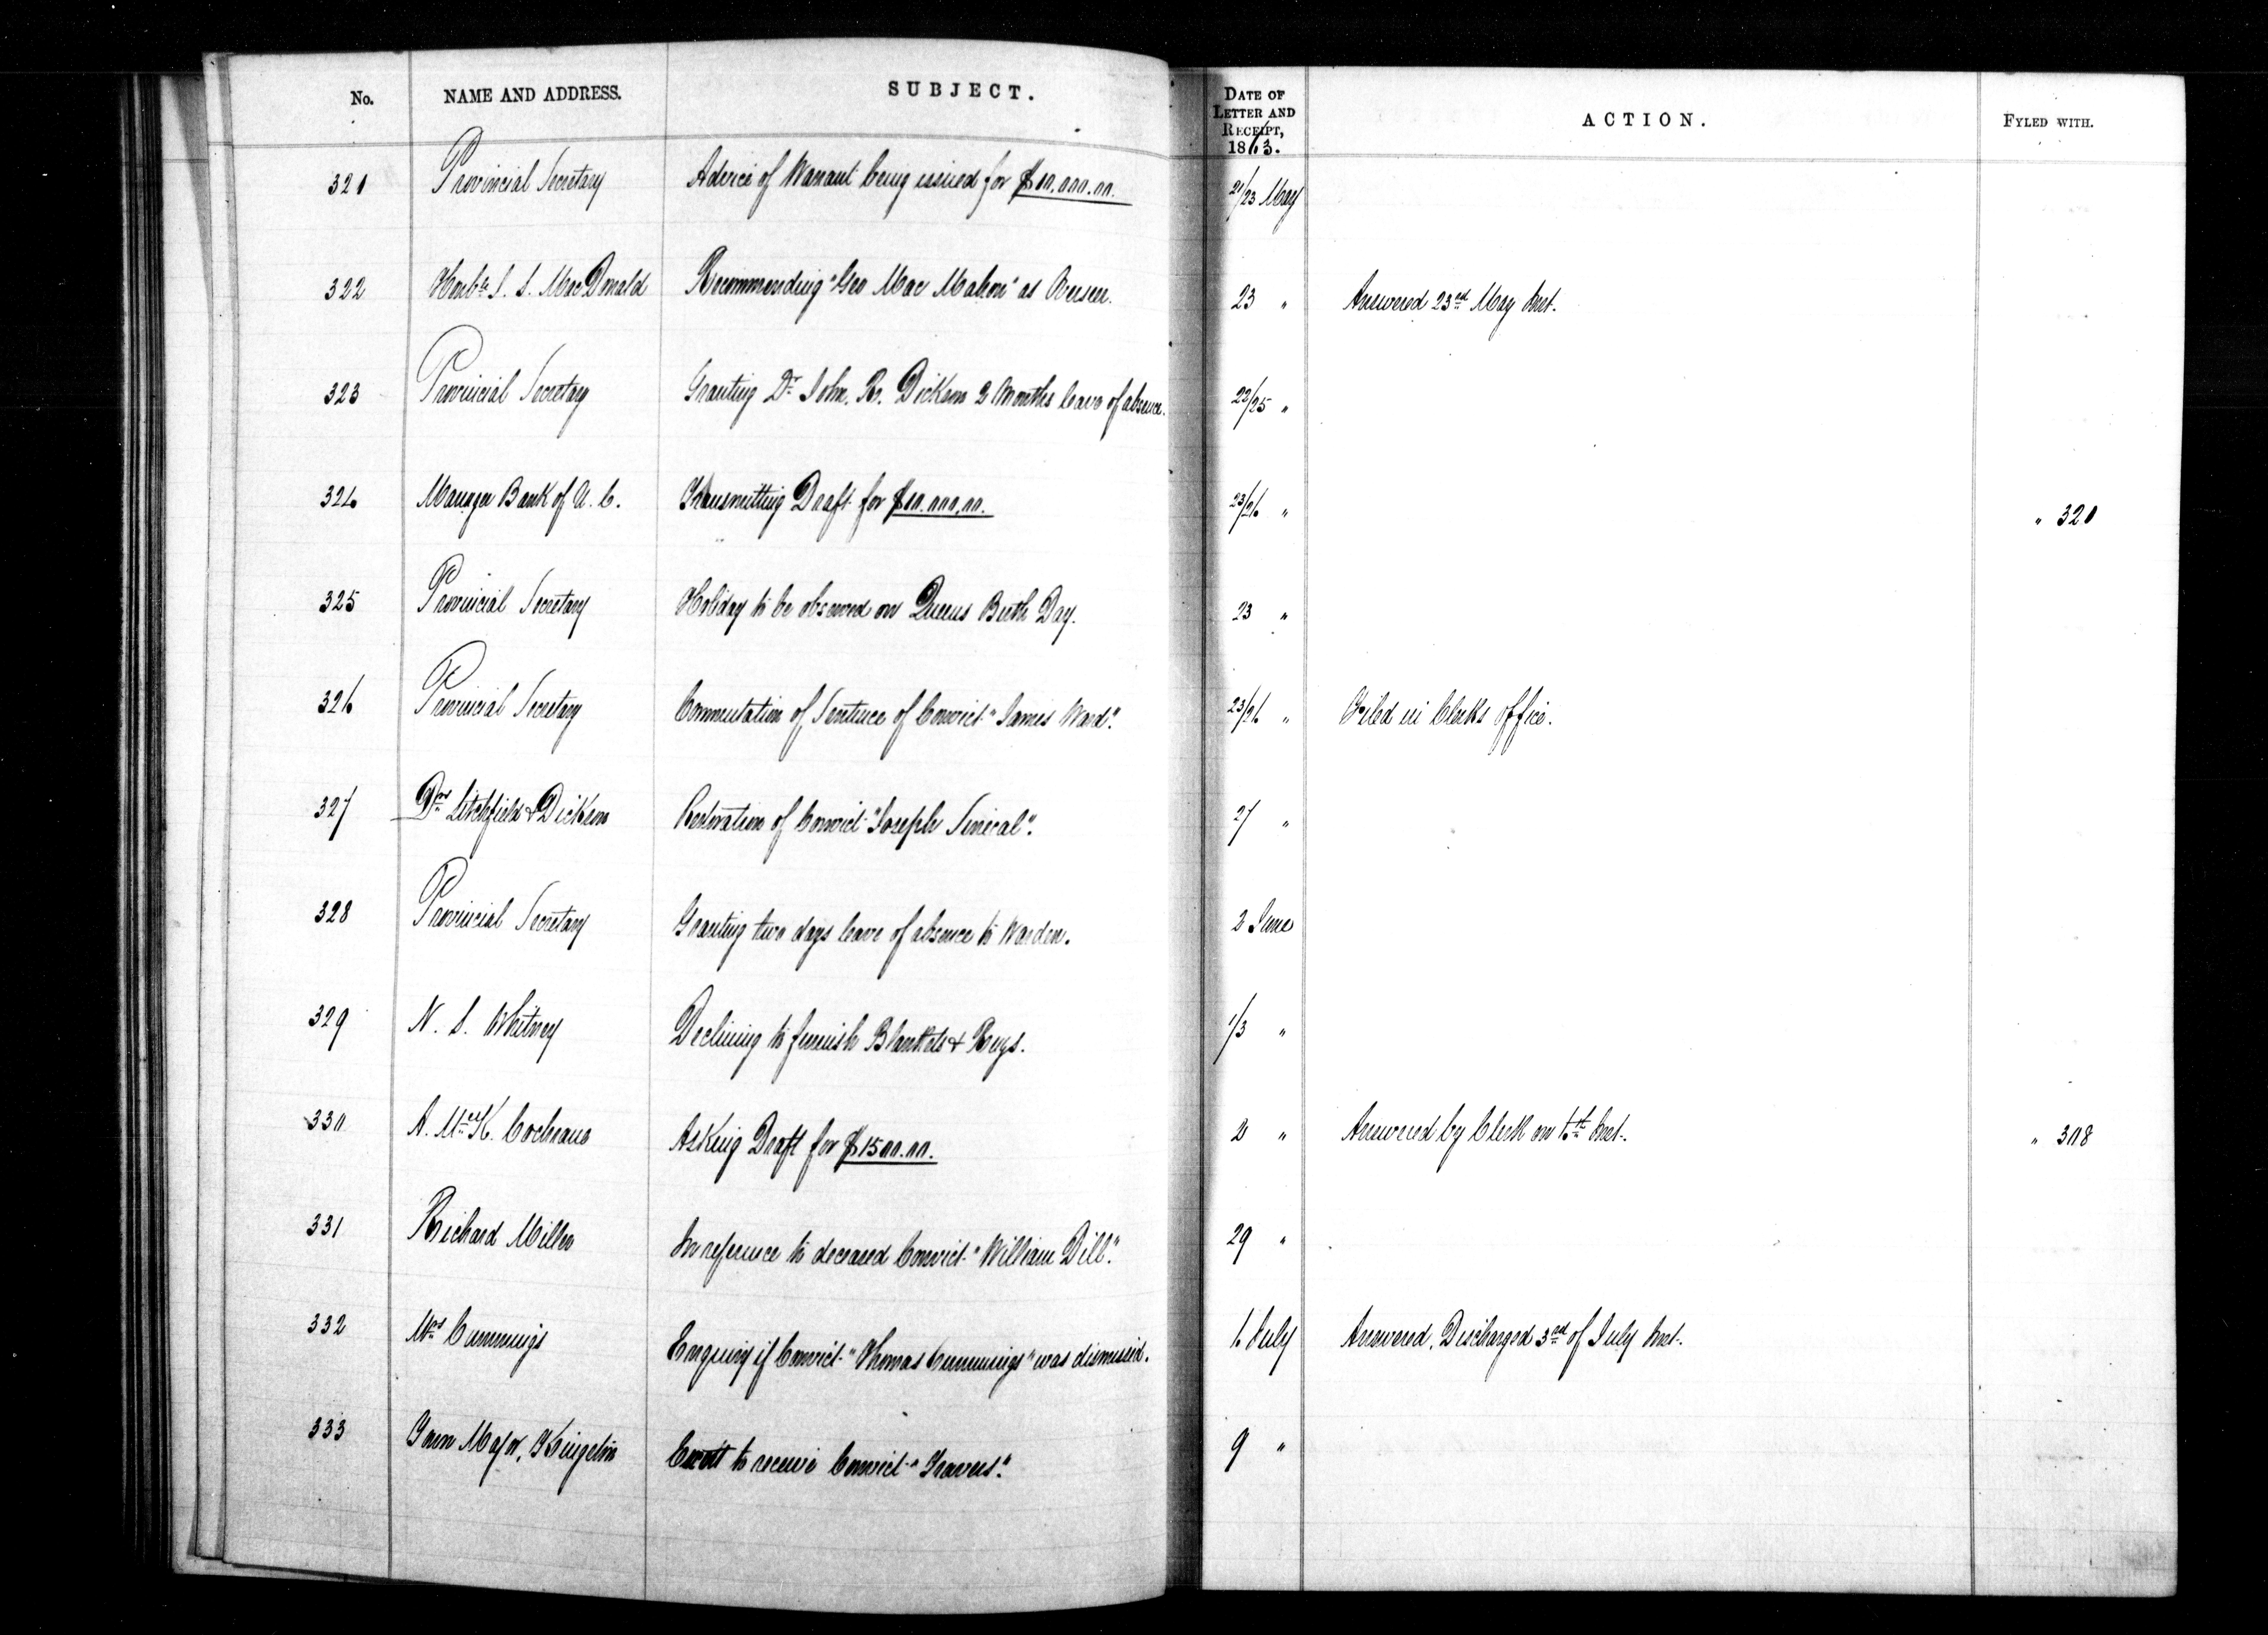 No. NAME AND ADDRESS. SUBJECT. DATE OF LETTER AND RECEIPT, 1863. ACTION. FYLED WITH.
321 Provincial Secretary Advice of Warrant being issued for $10,000.00. 21/23 May
322 Honble J. S. MacDonald Recommending "Geo Mac Mahon" as Overseer. 23 " Answered 23rd May Inst.
323 Provincial Secretary Granting Dr John. R. Dickson 2 Months leave of absence. 22/25 "
324 Manager Bank of U. C. Transmitting Draft for $10.000.00. 23/26 " " 321
325 Provincial Secretary Holiday to be observed on Queens Birth Day. 23 "
326 Provincial Secretary Commutation of Sentence of Convict "James Ward". 23/26 " Filed in Clerks office.
327 Drs Litchfield & Dickson Restoration of Convict "Joseph Sinical". 27 "
328 Provincial Secretary Granting two days leave of absence to Warden. 2 June
329 N. S. Whitney Declining to furnish Blankets & Rugs. 1/3 "
330 A. McK. Cochrane Asking Draft for $1500.00. 2 " Answered by Clerk on 6th Inst. " 308
331 Richard Miller In reference to deceased Convict "William Dill". 29 "
332 Mrs Cummings Enquiry if Convict "Thomas Cummings" was dismissed. 6 July Answered, Discharged 3rd of July Inst.
333 Town Major, Kingston to receive Convict "Travers". 9 "